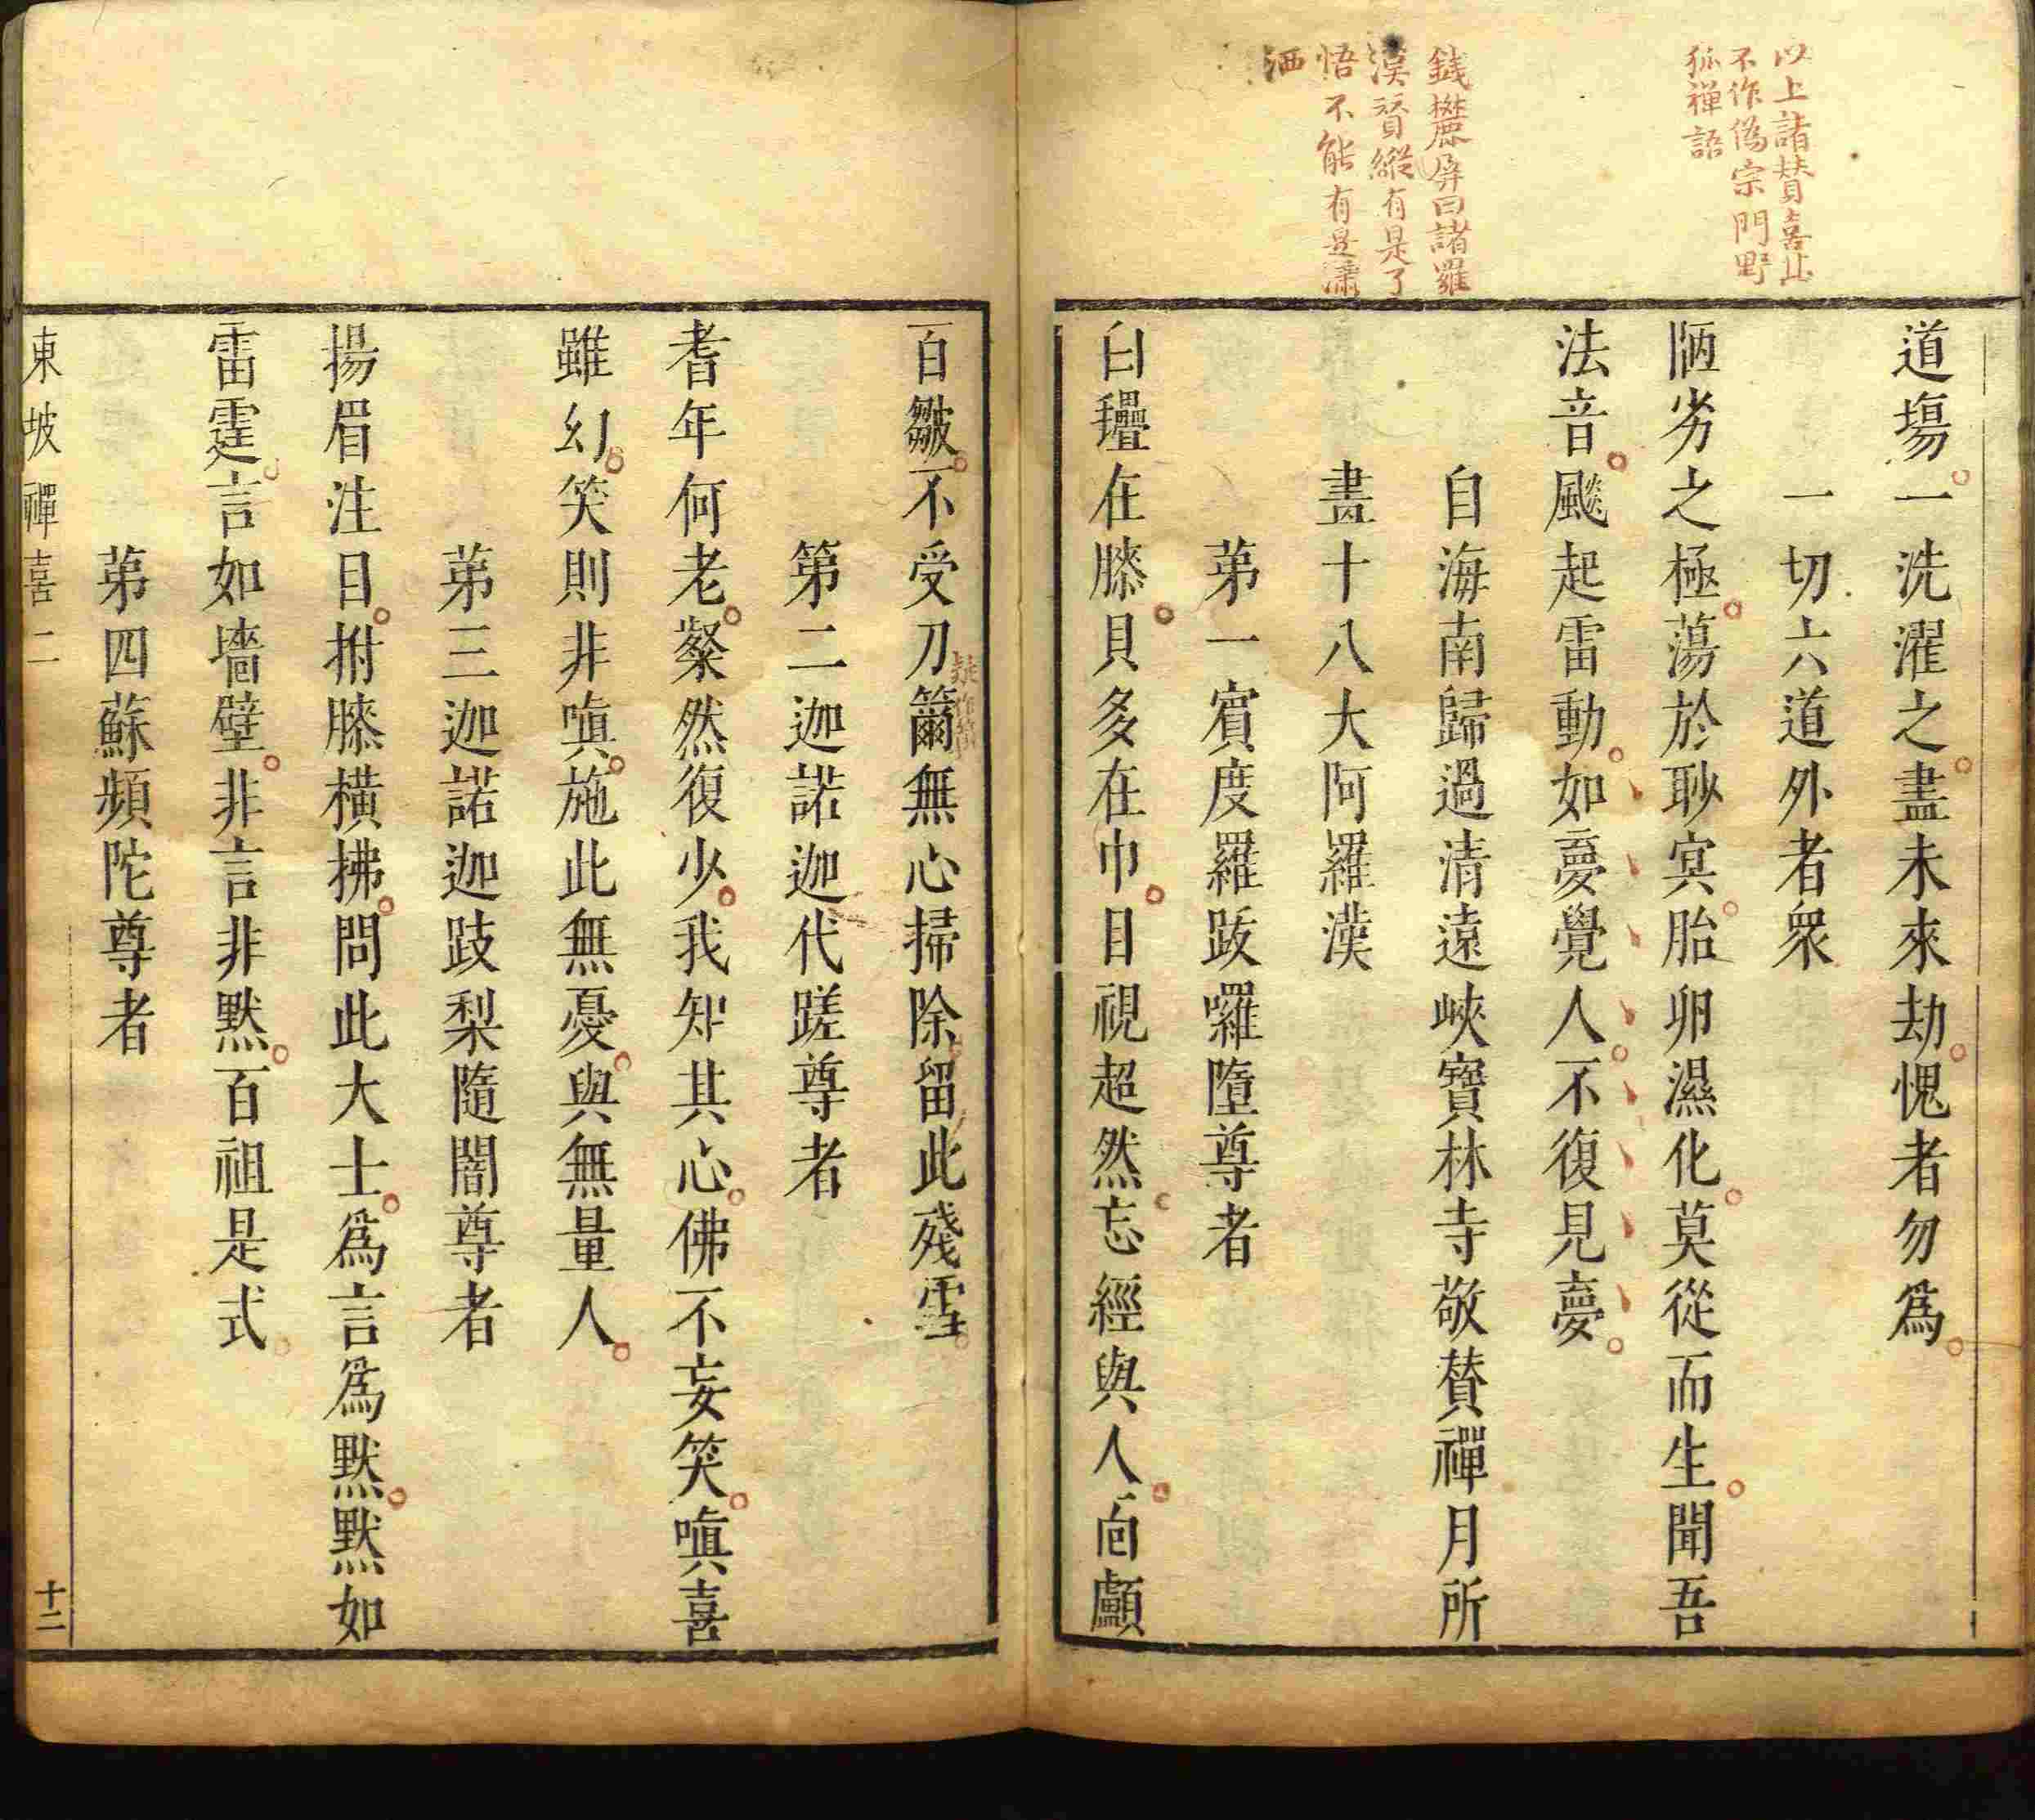 以上諸賛喜其
不作偽宗門野
狐禪語
錢麓屏曰諸羅
漢賛縱有是了
悟不能有是瀟
洒
道塲一洗濯之盡未來劫愧者勿爲
一切六道外者衆
陋劣之極蕩於眇冥胎卵濕化莫從而生聞吾
法音飈起雷動如夢覺人不復見夢
自海南歸過清遠峽寶林寺敬賛禪月所
畫十八大阿羅漢
第一賓度羅跋囉墮尊者
白㲲在膝貝多在巾目視超然忘經與人面顱
百皺不受刀籋無心掃除留此殘雪
疑作鑷
第二迦諾迦代蹉尊者
耆年何老粲然復少我知其心佛不妄笑嗔喜
雖幻笑則非嗔施此無憂與無量人
第三迦諾迦跋梨隨闍尊者
揚眉注目拊膝橫拂問此大士爲言爲默默如
雷霆言如墻壁非言非默百祖是式
第四蘇頻陀尊者
東坡禪喜二
十二